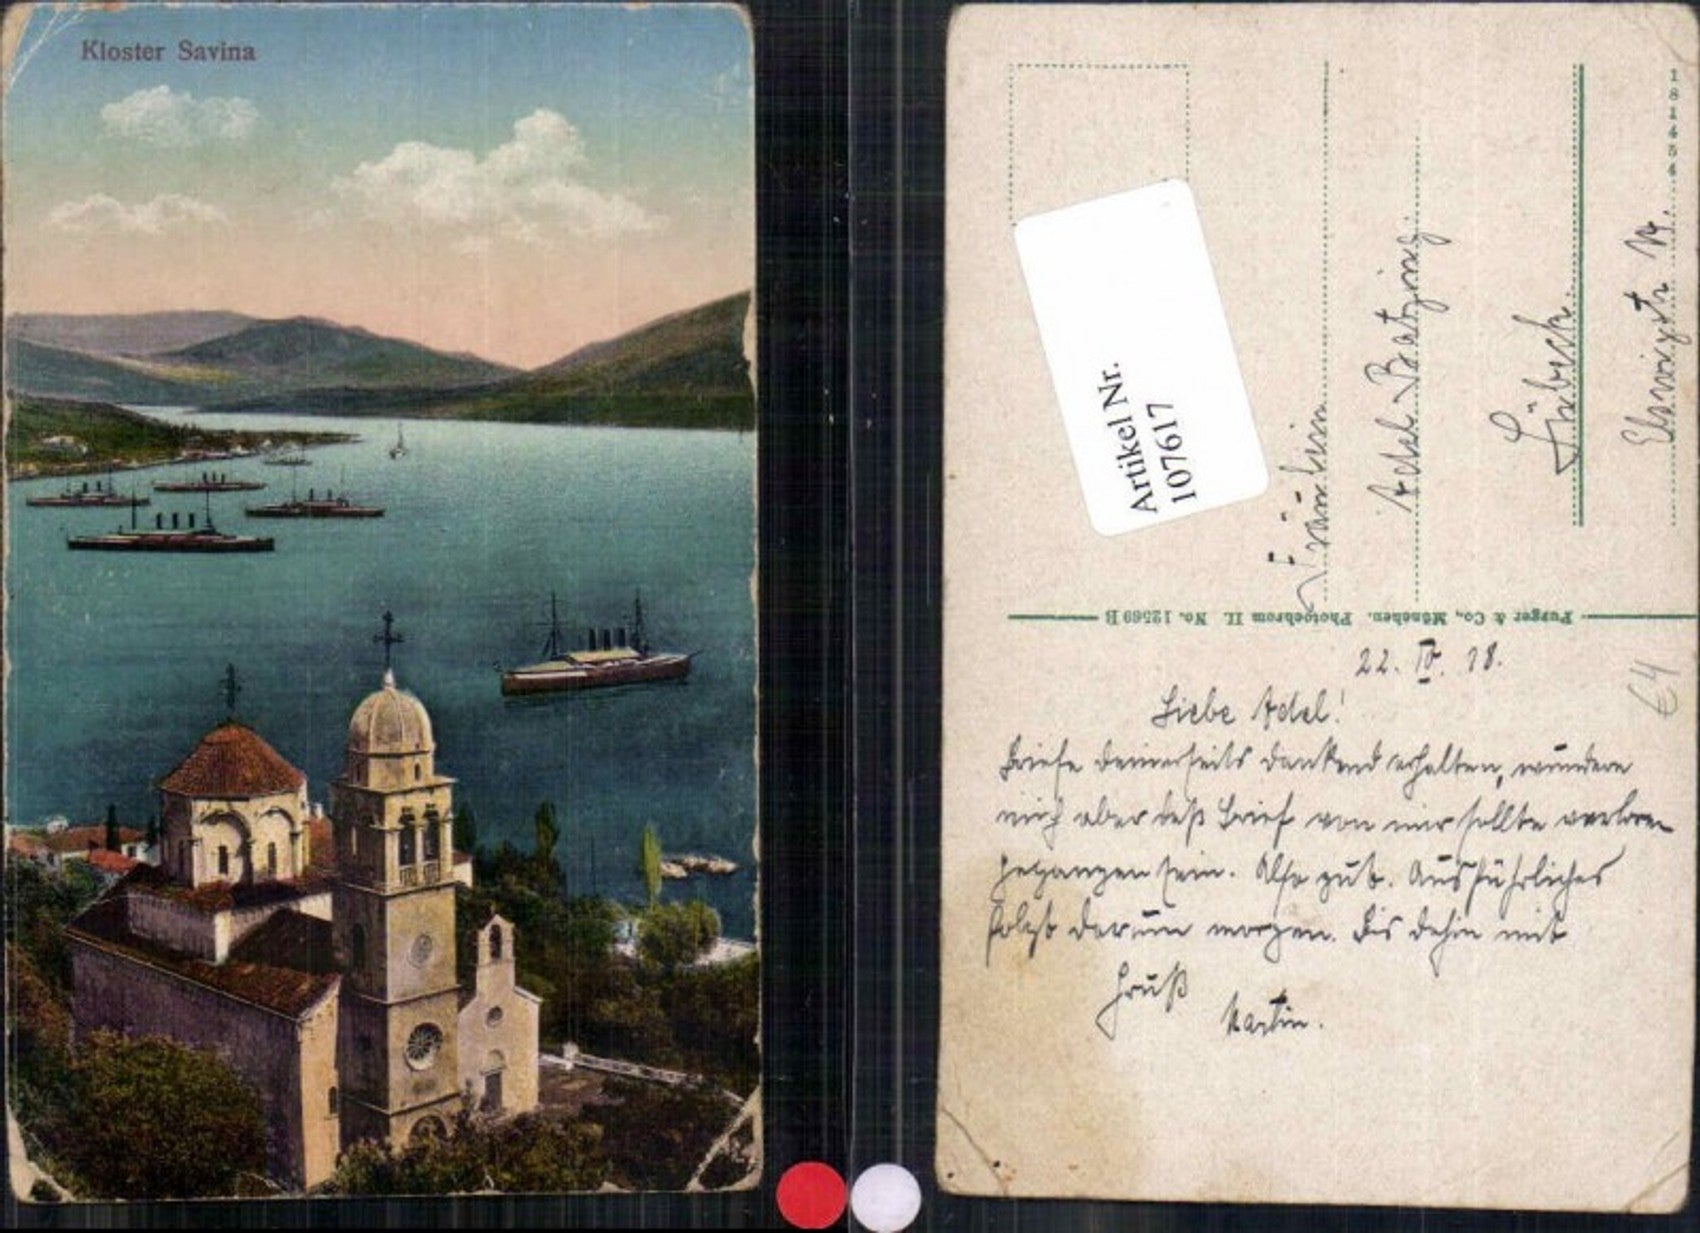 Kloster Savina
181454
Artikel Nr.
107617
Fräulein
Adel
Lübeck.
Purger & Co., München. Photochrom II. No. 12569 B
22. IV. 18.
€4
Liebe Adel!
Briefe deinerseits dankend erhalten, wundere
mich aber daß Brief von mir sollte verloren
gegangen sein. Also gut. Ausführliches
folgt darum morgen. Bis dahin mit
Gruß
Martin.